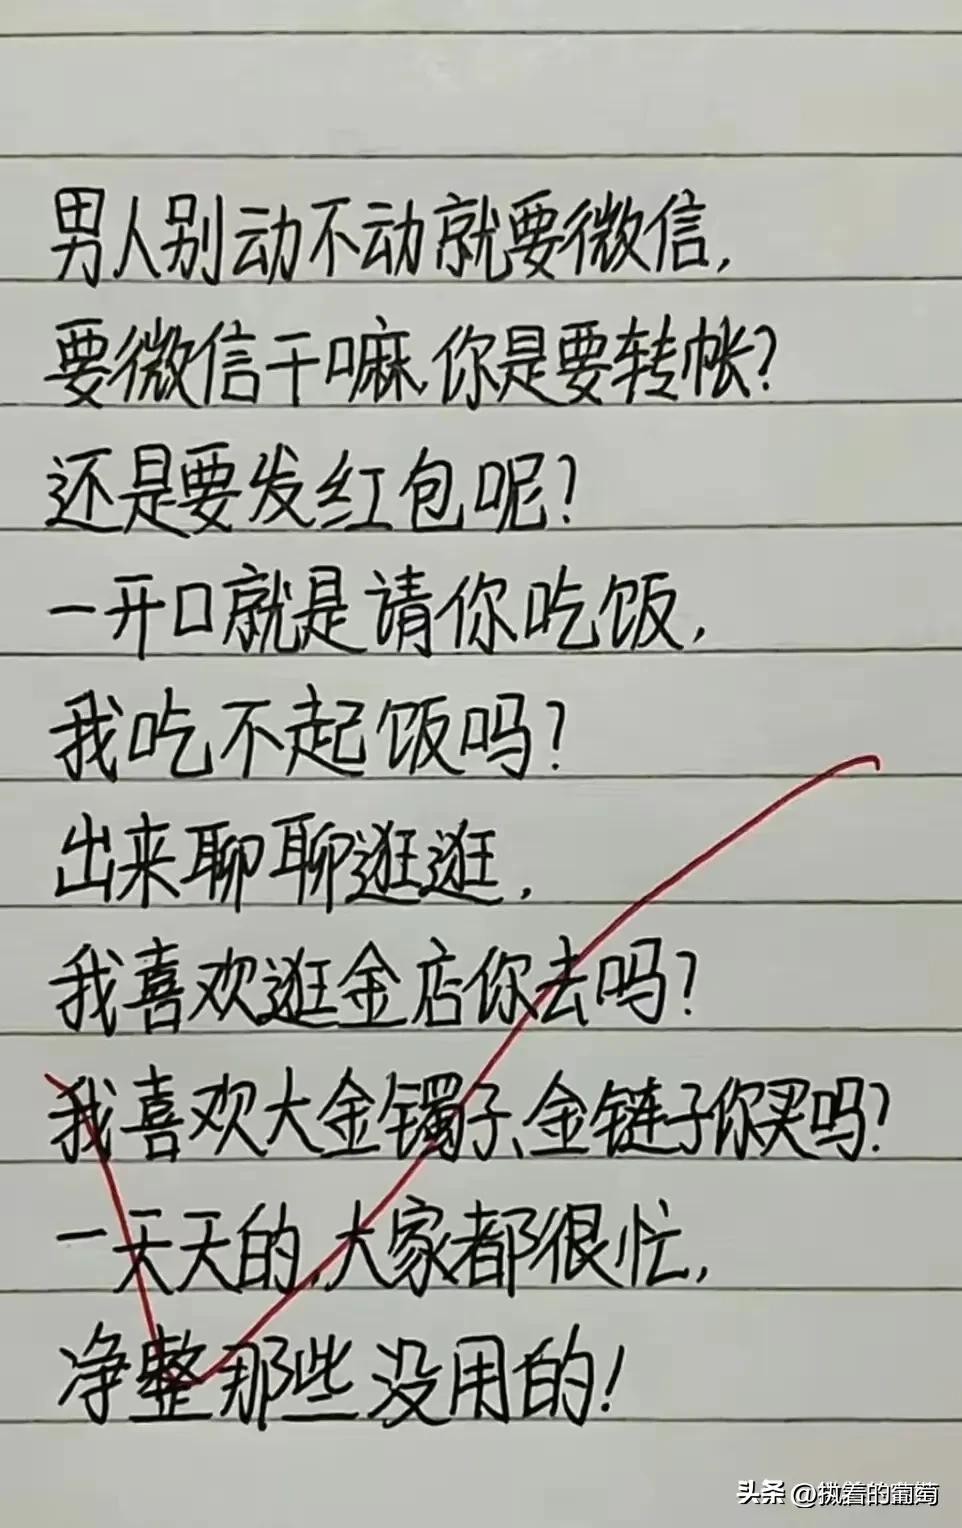 男人别动不动就要微信,
要微信干嘛,你是要转帐?
还是要发红包呢?
一开口就是请你吃饭,
我吃不起饭吗?
出来聊聊逛逛,
我喜欢逛金店你去吗?
我喜欢大金镯子、金链子你买吗?
一天天的,大家都很忙,
净整那些没用的!
头条 @执着的葡萄